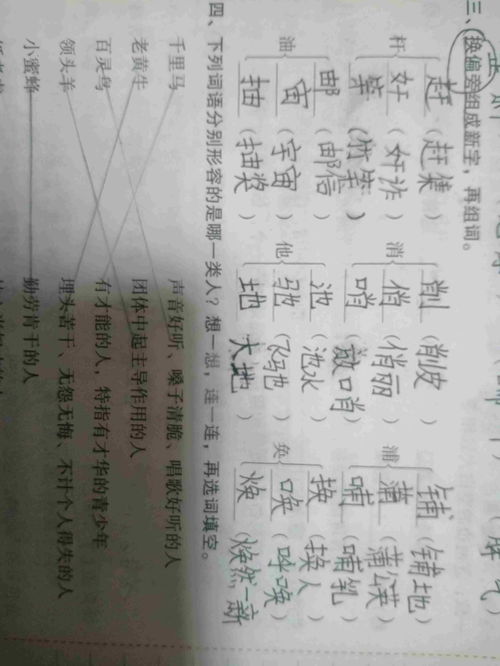 三、换偏旁组成新字，再组词。
赶（赶集） 削（削皮） 铺（铺地）
杆 奸（奸诈） 消 俏（俏丽） 浦 蒲（蒲公英）
竿（竹竿） 哨（放哨） 哺（哺乳）
邮（邮信） 池（池水） 换（换人）
油 宙（宇宙） 他 驰（飞驰） 奂 唤（呼唤）
抽（抽奖） 地（大地） 焕（焕然一新）
四、下列词语分别形容的是哪一类人？想一想，连一连，再选词填空。
千里马 声音好听、嗓子清脆、唱歌好听的人
老黄牛 团体中起主导作用的人
百灵鸟 有才能的人，特指有才华的青少年
领头羊 埋头苦干、无怨无悔、不计个人得失的人
小蜜蜂 勤劳肯干的人